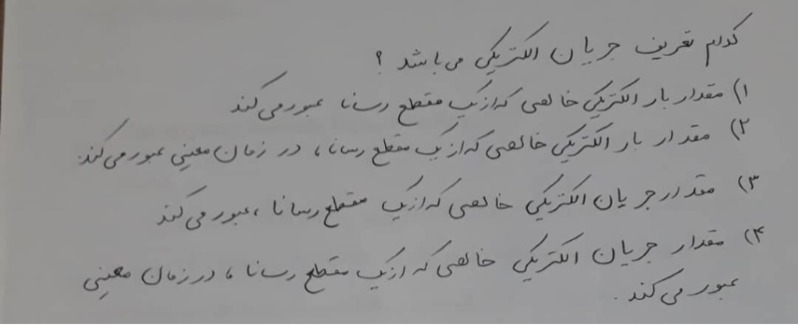 کدام تعریف جریان الکتریکی می باشد ؟
۱) مقدار بار الکتریکی خالصی که از یک مقطع رسانا عبور می کند
۲) مقدار بار الکتریکی خالصی که از یک مقطع رسانا، در زمان معینی عبور می کند.
۳) مقدار جریان الکتریکی خالصی که از یک مقطع رسانا، عبور می کند
۴) مقدار جریان الکتریکی خالصی که از یک مقطع رسانا، در زمان معینی
عبور می کند.